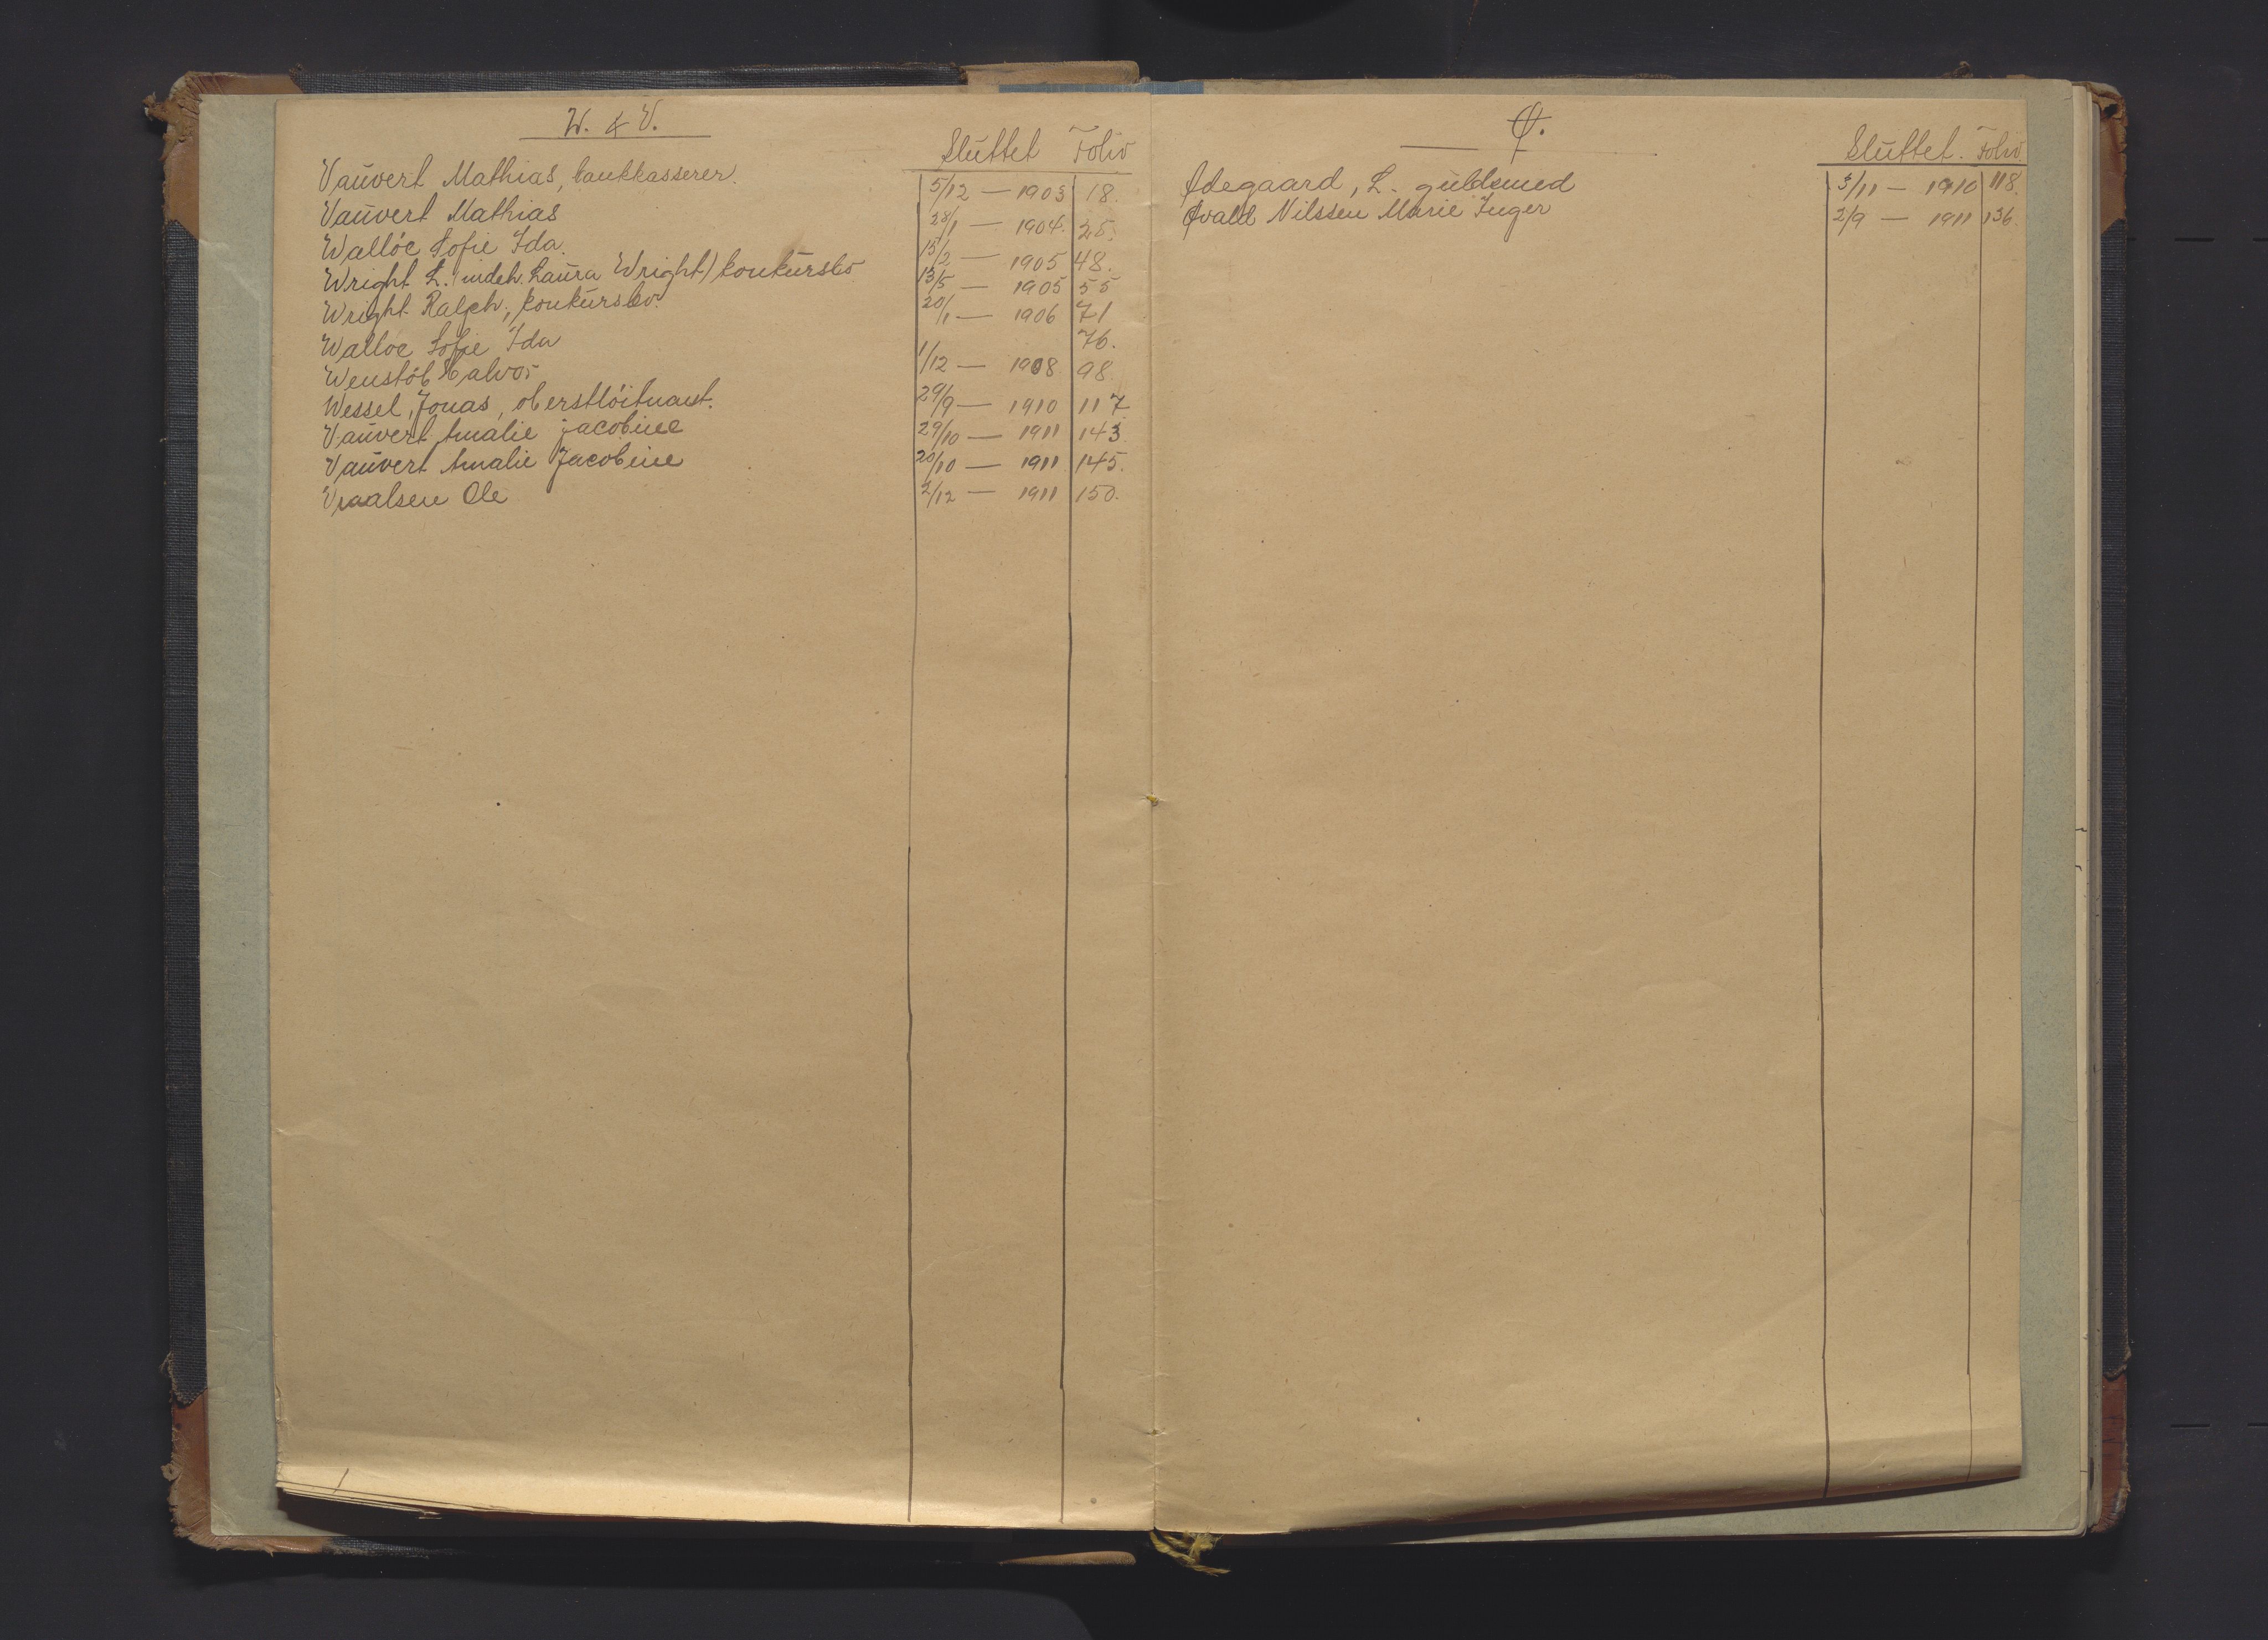 W. & V.
Sluttet Folio
Vauvert Mathias, bankkasserer. 5/12 — 1903 18.
Vauvert Mathias 28/1 — 1904. 25.
Wallöe Sofie Ida. 15/2 — 1905 48.
Wright L. (indeh. Laura Wright) konkursbo 13/5 — 1905 55
Wright Ralph, konkursbo. 20/1 — 1906 71
Walloe Sofie Ida 76.
Wenstöb Halvor 1/12 — 1908 98
Wessel, Jonas, oberstlöitnant. 29/9 — 1910 117
Vauvert Amalie jacobine 29/10 — 1911 143
Vauvert Amalie Jacobine 20/10 — 1911 145.
Vraalsen Ole 2/12 — 1911 150.
Ø.
Sluttet. Folio
Ødegaard, L. guldsmed 3/11 — 1910 118.
Øvald Nilssen Marie Inger 2/9 — 1911 136.